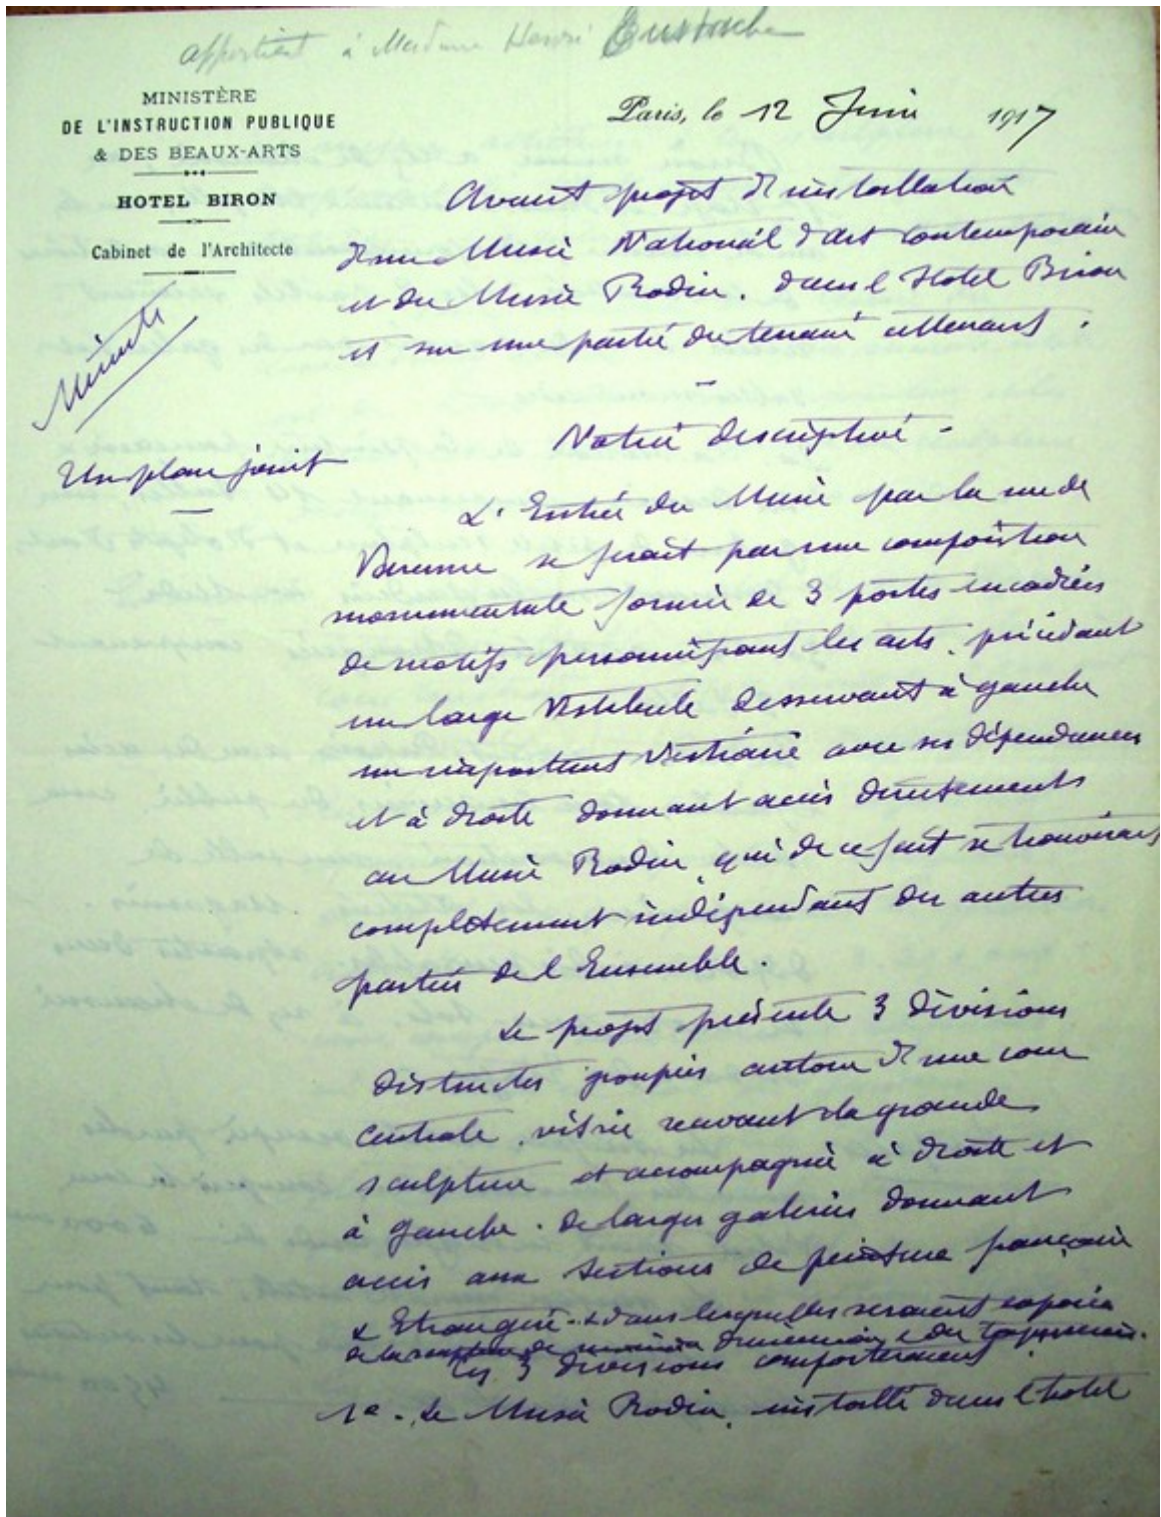 appartient à Madame Henri Eustache
MINISTÈRE
DE L'INSTRUCTION PUBLIQUE
& DES BEAUX-ARTS
HOTEL BIRON
Cabinet de l'Architecte
Paris, le 12 Juin 1917
Minute
Un plan joint
Avant projet d'installation
d'un Musée National d'art contemporain
et du Musée Rodin. dans l'Hotel Biron
et sur une partie du terrain attenant.
Notice descriptive -
L'Entrée du Musée par la rue de
Varenne se ferait par une composition
monumentale formée de 3 portes encadrées
de motifs personnifiant les arts, précédant
un large Vestibule desservant à gauche
un important Vestiaire avec ses dépendances
et à droite donnant accès directement
au Musée Rodin, qui de ce fait se trouverait
complètement indépendant des autres
parties de l'Ensemble.
Le projet présente 3 divisions
distinctes groupées autour d'une cour
centrale, vitrée recevant la grande
sculpture et accompagnée à droite et
à gauche. de larges galeries donnant
accès aux sections de peinture française
& Etrangère - & dans lesquelles seraient exposées
de la sculpture de moindre dimension & des tapisseries.
Ces 3 divisions comporteraient
1º - Le Musée Rodin, installé dans l'hotel